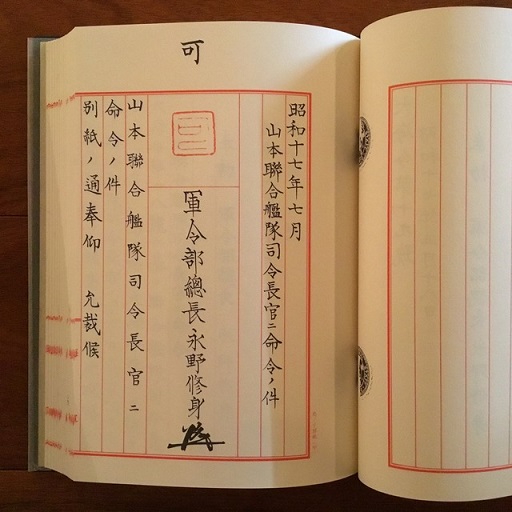 可
昭和十七年七月
山本聯合艦隊司令長官ニ命令ノ件
軍令部總長永野修身
山本聯合艦隊司令長官ニ
命令ノ件
別紙ノ通奉仰 允裁候